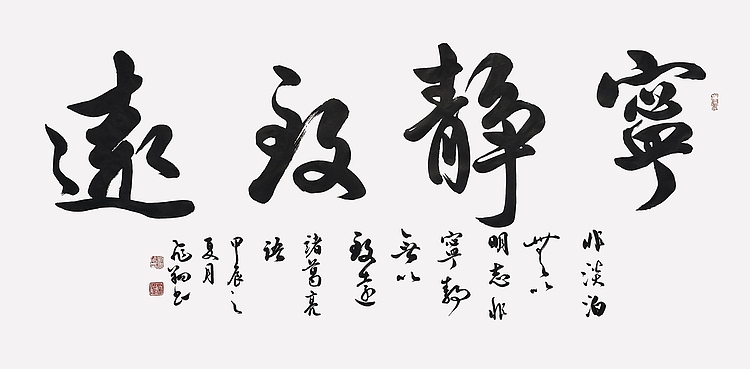 寧靜致遠
非淡泊
無以
明志非
寧靜
無以
致遠
諸葛亮
語
甲辰之
夏月